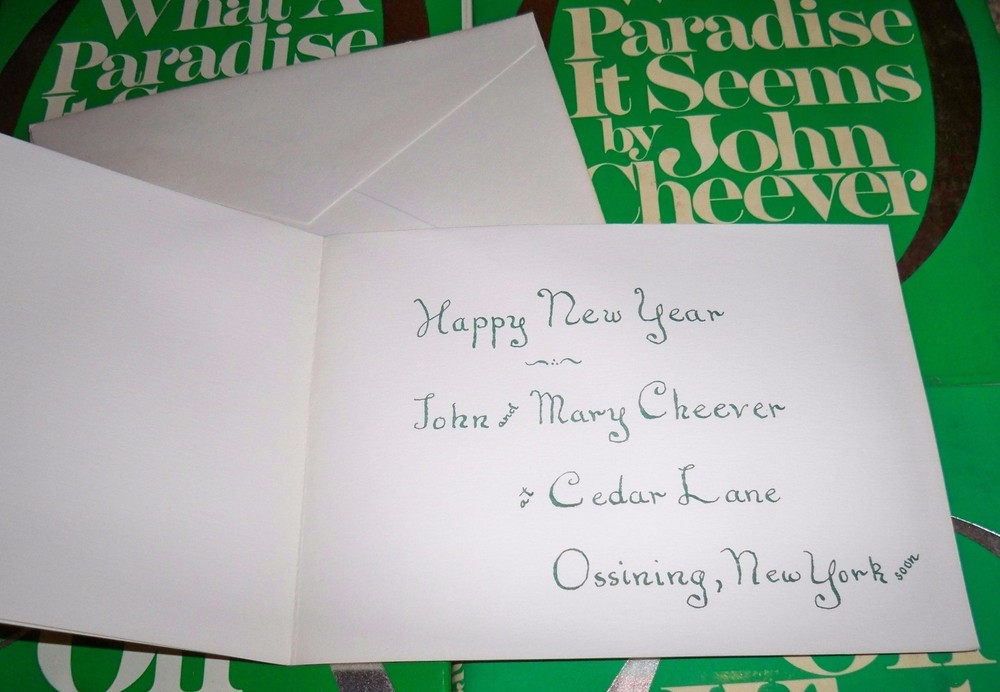 What A
Paradise
It S
Paradise
It Seems
by John
Cheever
Happy New Year
John and Mary Cheever
at Cedar Lane
Ossining, New York soon
Oh
Oh